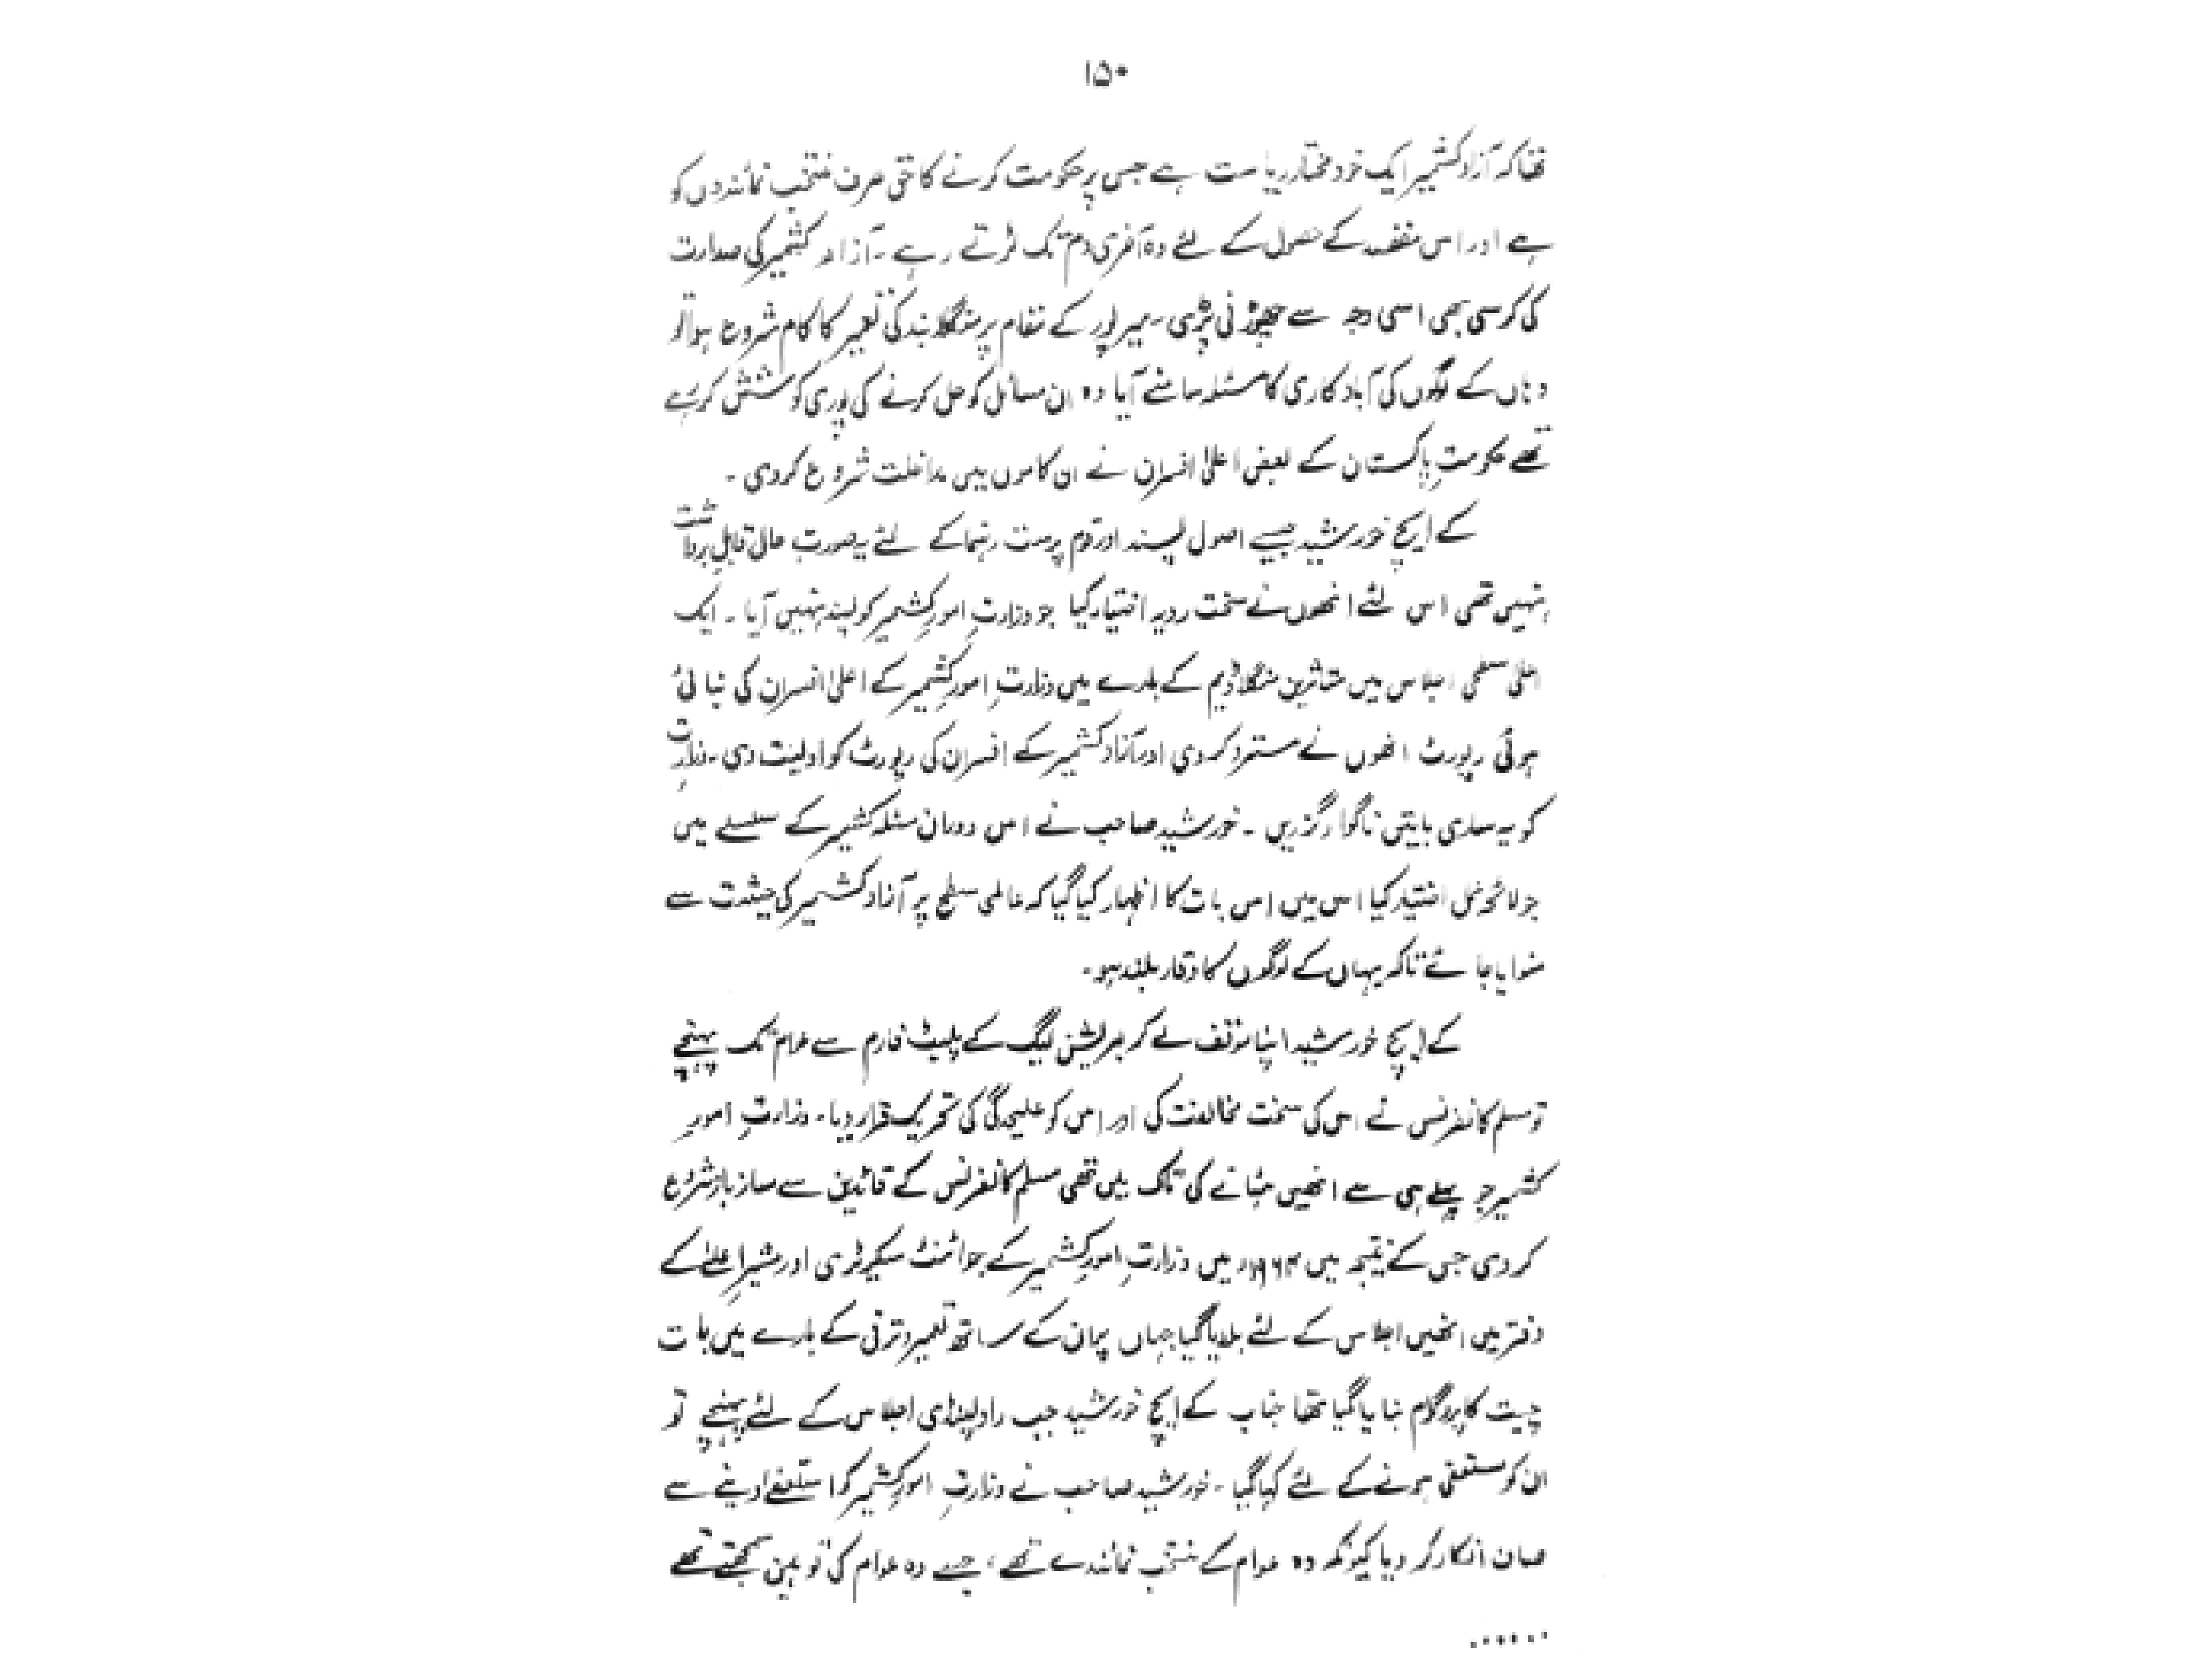 ۱۵۰
تھا کہ آزاد کشمیر ایک خود مختار ریاست ہے جس پر حکومت کرنے کا حق صرف منتخب نمائندوں کو
ہے اور اس مقصد کے حصول کے لئے وہ آخری دم تک لڑتے رہے ۔ آزاد کشمیر کی صدارت
کی کرسی بھی اسی وجہ سے چھوڑنی پڑی ۔ میرپور کے مقام پر منگلا بند کی تعمیر کا کام شروع ہوا تو
وہاں کے لوگوں کی آبادکاری کا مسئلہ سامنے آیا وہ ان مسائل کو حل کرنے کی پوری کوشش کر رہے
تھے حکومتِ پاکستان کے بعض اعلیٰ افسران نے ان کاموں میں مداخلت شروع کر دی ۔
کے ایچ خورشید جیسے اصول پسند اور قوم پرست رہنما کے لئے یہ صورتِ حال قابلِ برداشت
نہیں تھی اس لئے انھوں نے سخت رویہ اختیار کیا جو وزارتِ امورِ کشمیر کو پسند نہیں آیا ۔ ایک
اعلیٰ سطحی اجلاس میں متاثرین منگلا ڈیم کے بارے میں وزارتِ امورِ کشمیر کے اعلیٰ افسران کی بنائی
ہوئی رپورٹ انھوں نے مسترد کر دی اور آزاد کشمیر کے افسران کی رپورٹ کو اولیت دی ۔ وزارت
کو یہ ساری باتیں ناگوار گزریں ۔ خورشید صاحب نے اس دوران مسئلہ کشمیر کے سلسلے میں
جو لائحہ عمل اختیار کیا اس میں اس بات کا اظہار کیا گیا کہ عالمی سطح پر آزاد کشمیر کی حیثیت سے
منوایا جائے تاکہ یہاں کے لوگوں کا وقار بلند ہو ۔
کے ایچ خورشید اپنا مؤقف لے کر لبریشن لیگ کے پلیٹ فارم سے عوام تک پہنچے
تو مسلم کانفرنس نے اس کی سخت مخالفت کی اور اس کو علیحدگی کی تحریک قرار دیا ۔ وزارتِ امورِ
کشمیر جو پہلے ہی سے انھیں ہٹانے کی تاک میں تھی مسلم کانفرنس کے قائدین سے ساز باز شروع
کر دی جس کے نتیجہ میں ۱۹۶۴ء میں وزارتِ امورِ کشمیر کے جوائنٹ سیکرٹری اور مشیرِ اعلیٰ کے
دفتر میں انھیں اجلاس کے لئے بلایا گیا جہاں پر ان کے ساتھ تعمیر و ترقی کے بارے میں بات
چیت کا پروگرام بنایا گیا تھا جناب کے ایچ خورشید جب راولپنڈی اجلاس کے لئے پہنچے تو
ان کو مستعفی ہونے کے لئے کہا گیا ۔ خورشید صاحب نے وزارتِ امورِ کشمیر کو استعفےٰ دینے سے
صاف انکار کر دیا کیونکہ وہ عوام کے منتخب نمائندے تھے ، جسے وہ عوام کی توہین سمجھتے تھے
......